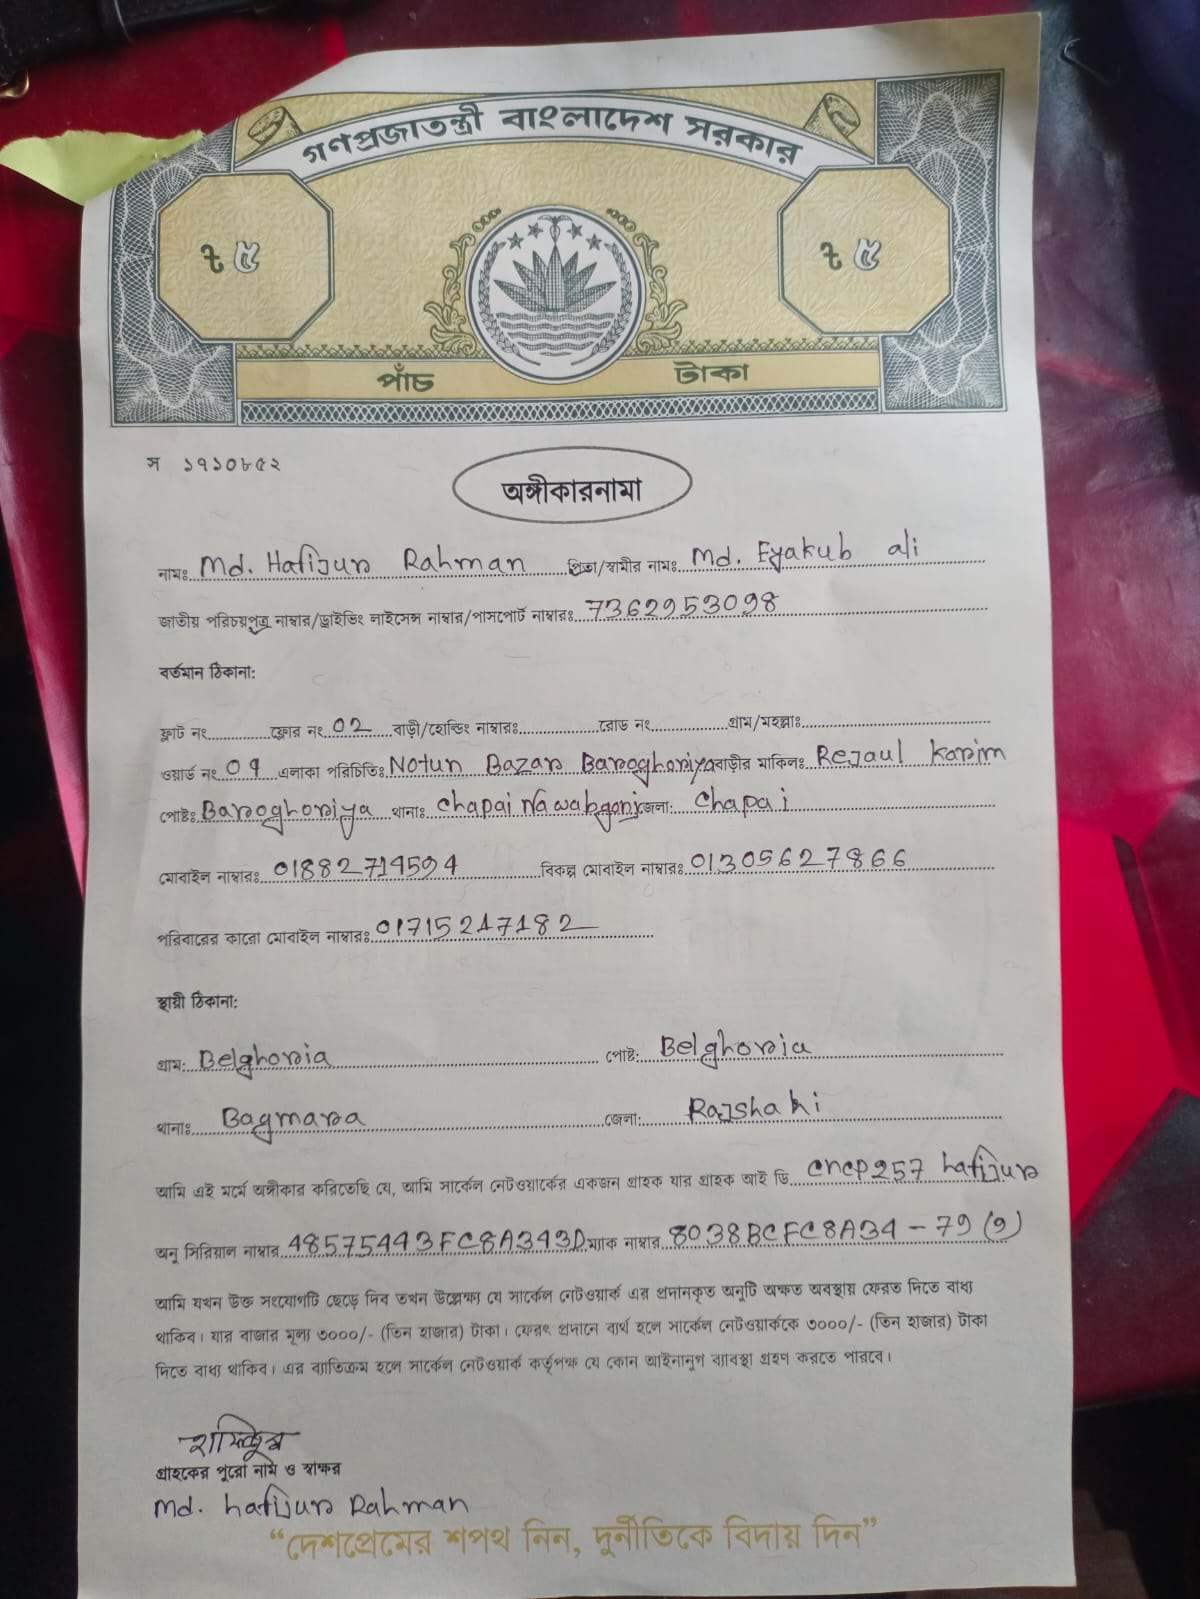 গণপ্রজাতন্ত্রী বাংলাদেশ সরকার
৳ ৫ ৳ ৫
পাঁচ টাকা
স ১৭১০৮৫২
অঙ্গীকারনামা
নামঃ Md. Hafijur Rahman পিতা/স্বামীর নামঃ Md. Eyakub ali
জাতীয় পরিচয়পত্র নাম্বার/ড্রাইভিং লাইসেন্স নাম্বার/পাসপোর্ট নাম্বারঃ 7362953098
বর্তমান ঠিকানা:
ফ্লাট নং ফ্লোর নং 02 বাড়ী/হোল্ডিং নাম্বারঃ রোড নং গ্রাম/মহল্লাঃ
ওয়ার্ড নং 09 এলাকা পরিচিতিঃ Notun Bazar Baroghoriya বাড়ীর মালিকঃ Rejaul Karim
পোষ্টঃ Baroghoriya থানাঃ Chapai Nawabganj জেলা: Chapai
মোবাইল নাম্বারঃ 01882714594 বিকল্প মোবাইল নাম্বারঃ 01305627866
পরিবারের কারো মোবাইল নাম্বারঃ 01715247182
স্থায়ী ঠিকানা:
গ্রাম: Belghoria পোষ্ট: Belghoria
থানাঃ Bagmara জেলা: Rajshahi
আমি এই মর্মে অঙ্গীকার করিতেছি যে, আমি সার্কেল নেটওয়ার্কের একজন গ্রাহক যার গ্রাহক আই ডি cncp257 hafijur
অনু সিরিয়াল নাম্বার 48575443FC8A343D ম্যাক নাম্বার 8038BCFC8A34 - 79 (9)
আমি যখন উক্ত সংযোগটি ছেড়ে দিব তখন উল্লেক্ষ্য যে সার্কেল নেটওয়ার্ক এর প্রদানকৃত অনুটি অক্ষত অবস্থায় ফেরত দিতে বাধ্য
থাকিব। যার বাজার মূল্য ৩০০০/- (তিন হাজার) টাকা। ফেরৎ প্রদানে ব্যর্থ হলে সার্কেল নেটওয়ার্ককে ৩০০০/- (তিন হাজার) টাকা
দিতে বাধ্য থাকিব। এর ব্যাতিক্রম হলে সার্কেল নেটওয়ার্ক কর্তৃপক্ষ যে কোন আইনানুগ ব্যাবস্থা গ্রহণ করতে পারবে।
হাফিজুর
গ্রাহকের পুরো নাম ও স্বাক্ষর
Md. hafijur Rahman
“দেশপ্রেমের শপথ নিন, দুর্নীতিকে বিদায় দিন”